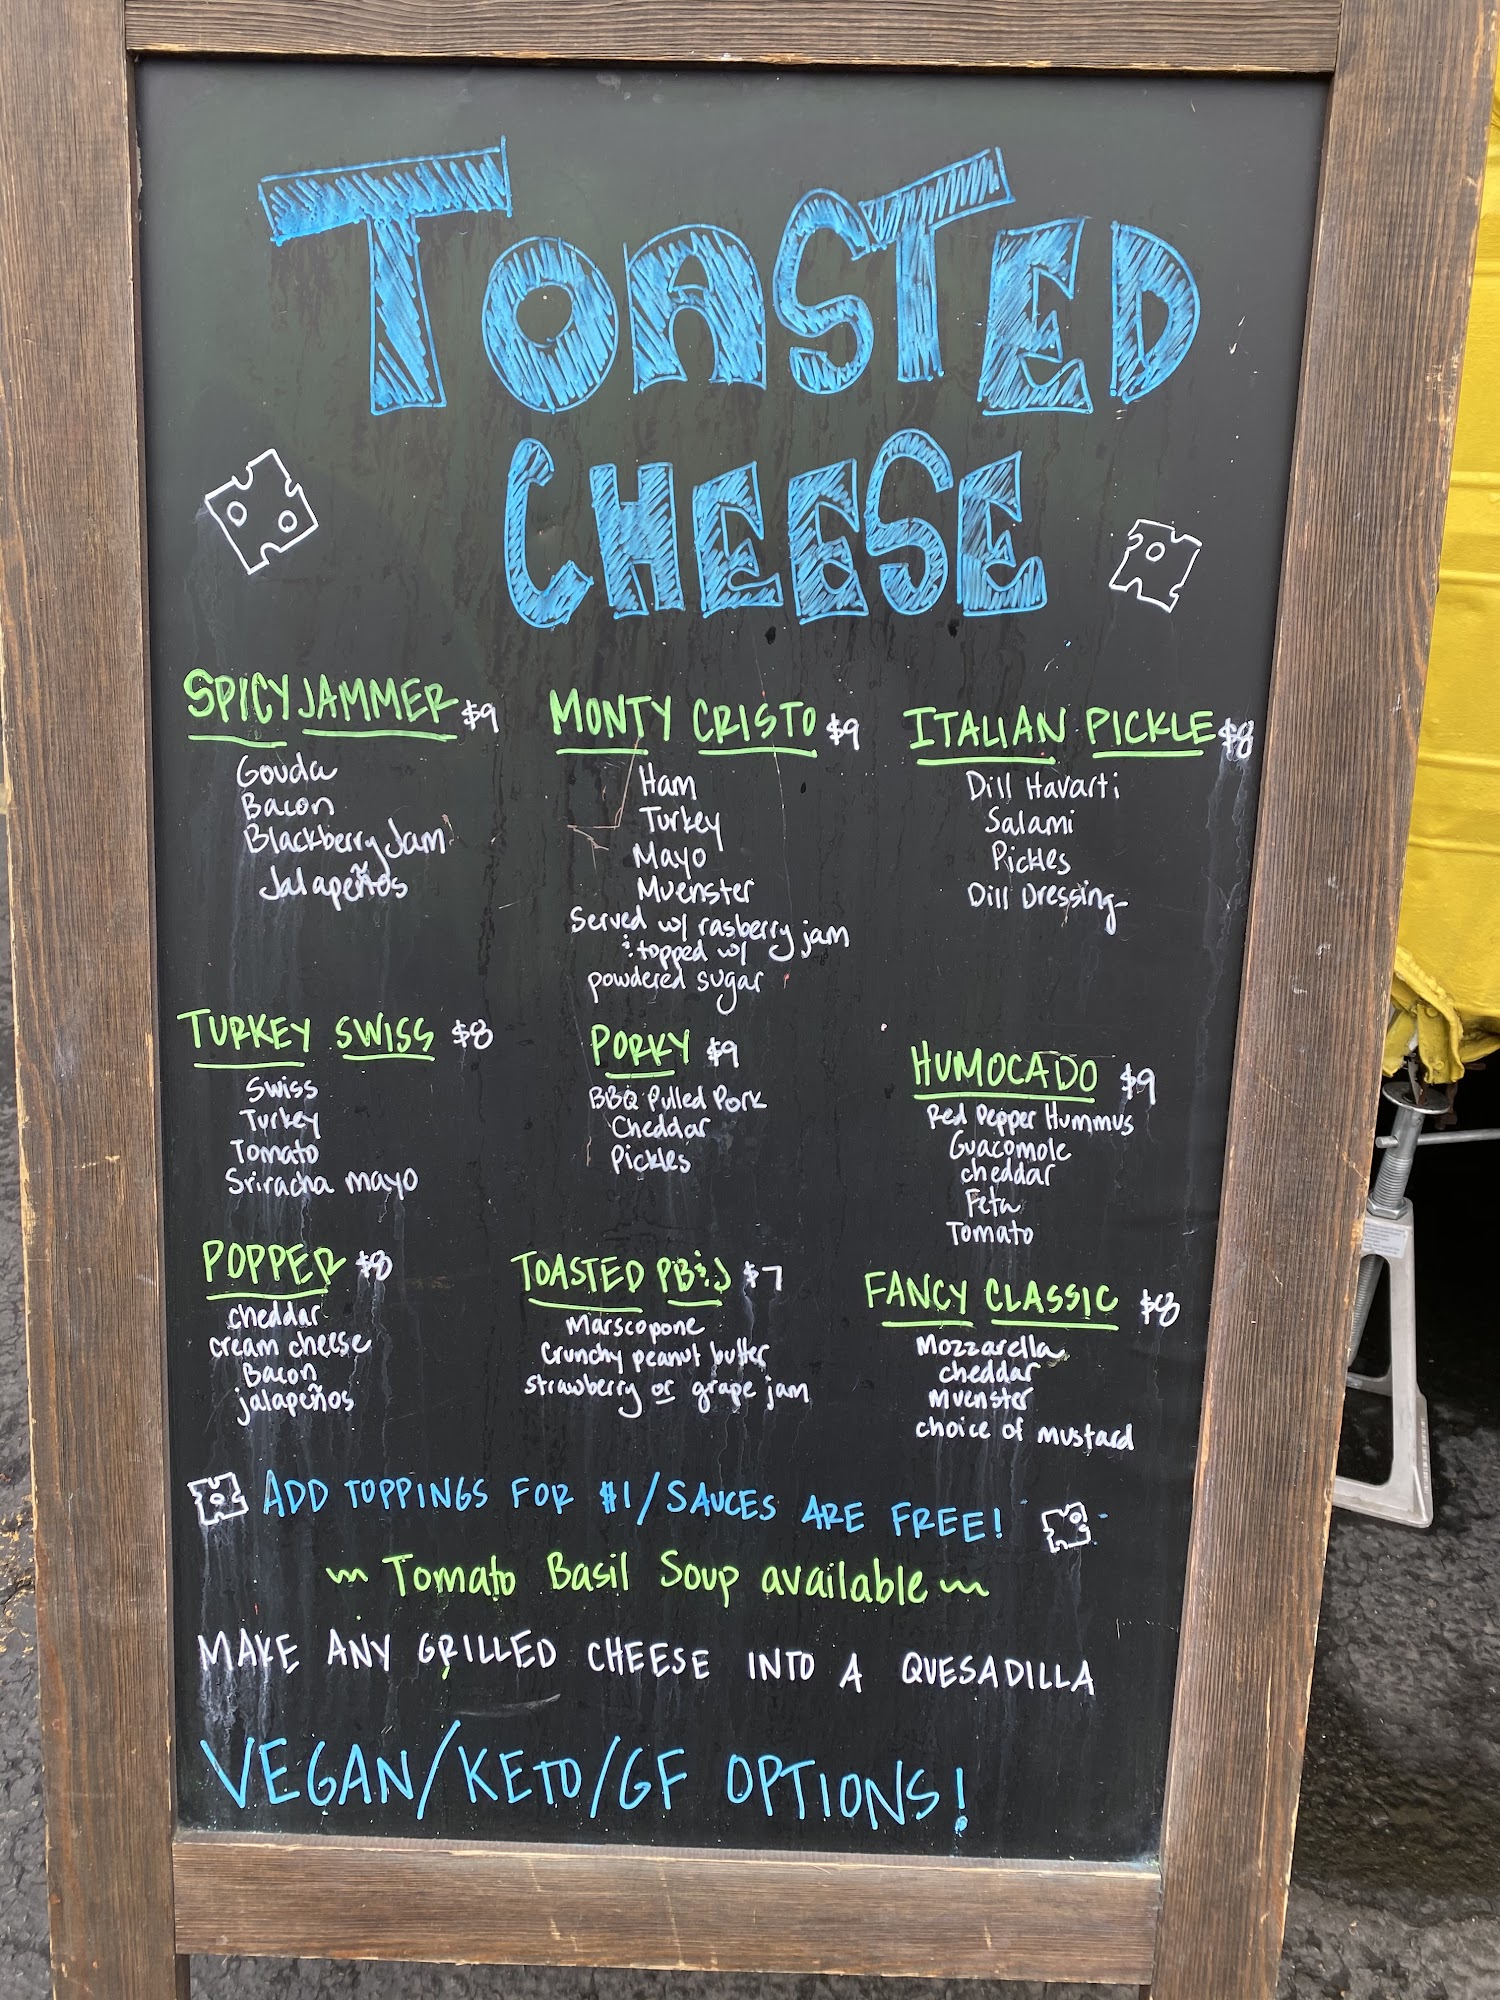 TOASTED
CHEESE
SPICY JAMMER $9
Gouda
Bacon
Blackberry Jam
Jalapeños
MONTY CRISTO $9
Ham
Turkey
Mayo
Muenster
Served w/ rasberry jam
& topped w/
powdered sugar
ITALIAN PICKLE $8
Dill Havarti
Salami
Pickles
Dill Dressing
TURKEY SWISS $8
Swiss
Turkey
Tomato
Sriracha mayo
PORKY $9
BBQ Pulled Pork
Cheddar
Pickles
HUMOCADO $9
Red Pepper Hummus
Guacomole
cheddar
Feta
Tomato
POPPER $8
cheddar
cream cheese
Bacon
jalapeños
TOASTED PB&J $7
Marscopone
Crunchy peanut butter
strawberry or grape jam
FANCY CLASSIC $8
Mozzarella
cheddar
Muenster
choice of mustard
ADD TOPPINGS FOR $1/SAUCES ARE FREE!
~ Tomato Basil Soup available ~
MAKE ANY GRILLED CHEESE INTO A QUESADILLA
VEGAN/KETO/GF OPTIONS!